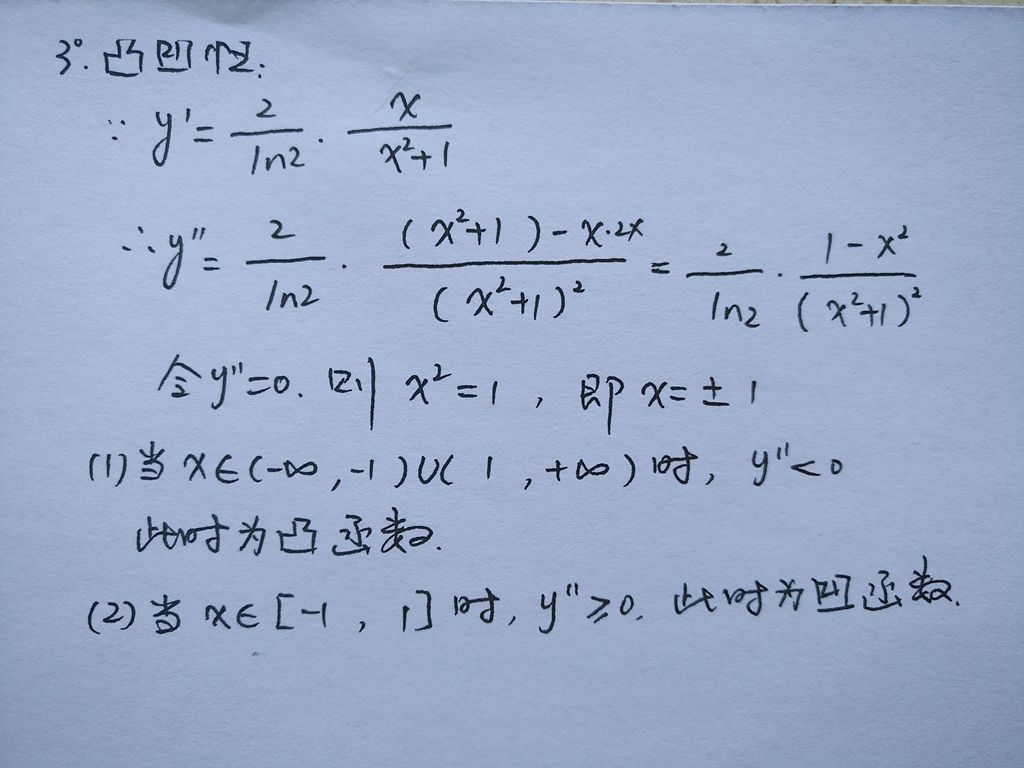 3°. 凸凹性:
∵ y' = 2/ln2 · x/(x²+1)
∴ y'' = 2/ln2 · ((x²+1) - x·2x)/(x²+1)² = 2/ln2 · (1-x²)/(x²+1)²
令 y''=0. 则 x²=1 , 即 x=±1
(1)当 x∈(-∞,-1)∪(1,+∞)时, y''<0
此时为凸函数.
(2)当 x∈[-1,1]时, y''≥0. 此时为凹函数.